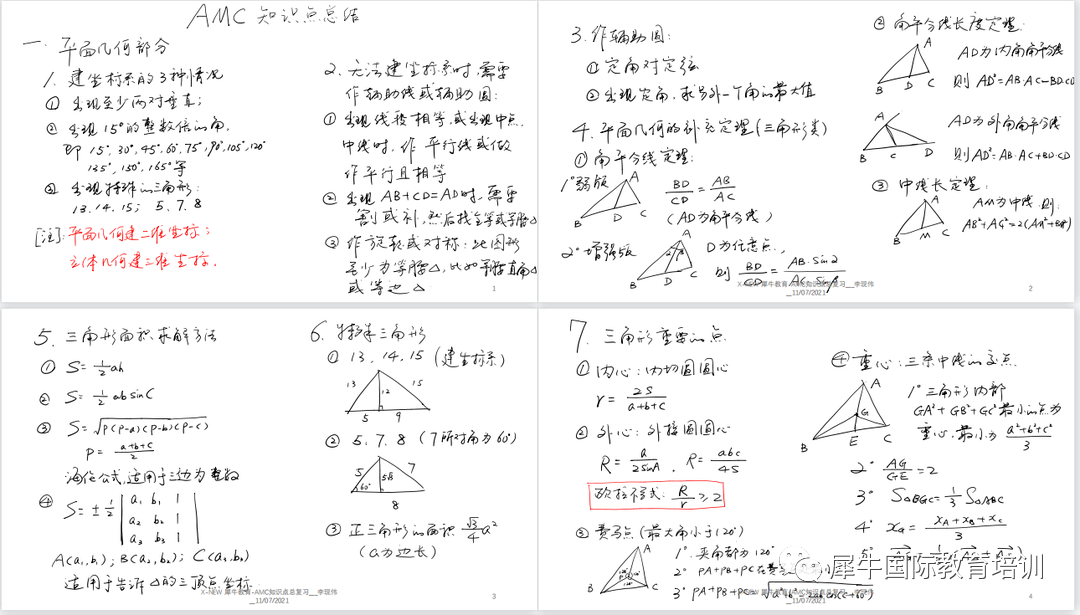 AMC 知识点总结
一. 平面几何部分
1. 建坐标系的3种情况
① 出现至少两对垂直;
② 出现15°的整数倍的角.
即 15°, 30°, 45°, 60°, 75°, 90°, 105°, 120°
135°, 150°, 165° 等
③ 出现特殊的三角形:
13. 14. 15; 5. 7. 8
[注]: 平面几何建二维坐标;
立体几何建三维坐标.
2. 无法建坐标系时, 需要
作辅助线或辅助圆:
① 出现线段相等, 或出现中点.
中线时. 作 平行线或做
作平行且相等
② 出现 AB+CD=AD时, 需要
割或补, 然后找全等或等腰△
③ 作旋转或对称: 此图形
至少为等腰△, 比如等腰直角△
或等边△
1
3. 作辅助圆:
① 定角对定弦
② 出现定角, 求另外一个角的最大值
4. 平面几何的补充定理 (三角形类)
① 角平分线定理:
1° 弱版
A
B
D
C
BD/CD = AB/AC
(AD为角平分线)
2° 增强版
A
B
D
C
D为任意点,
则 BD/CD = AB·sin2/AC·sin1
② 角平分线长度定理:
A
B
D
C
AD为内角角平分线
则 AD²=AB·AC-BD·CD
A
B
C
D
AD为外角角平分线
则AD²=AB·AC+BD·CD
③ 中线长定理,
A
B
M
C
AM为中线 则:
AB²+AC²=2(AM²+BM²)
X-NEW 犀牛教育-AMC知识点总复习__李现伟
_11/07/2021
2
5. 三角形面积求解方法
① S=½ah
② S=½absinC
③ S=√P(P-a)(P-b)(P-c)
P= (a+b+c)/2
海伦公式, 适用于三边为整数
④ S=±½
a₁ b₁ 1
a₂ b₂ 1
a₃ b₃ 1
A(a₁,b₁); B(a₂,b₂); C(a₃,b₃)
适用于告诉△的三顶点坐标.
6. 特殊三角形
① 13. 14. 15 (建坐标系)
13
12
15
5
9
② 5. 7. 8 (7所对角为60°)
5
7
60°
8
③ 正三角形的面积 √3/4 a²
(a为边长)
X-NEW 犀牛教育-AMC知识点总复习__李现伟
_11/07/2021
3
7. 三角形重要的点
① 内心: 内切圆圆心
r = 2S/(a+b+c)
② 外心: 外接圆圆心
R = a/2sinA , R = abc/4S
欧拉不等式: R/r ≥ 2
③ 费马点 (最大角小于120°)
A
B
C
1°. 夹角都为120°
2° PA+PB+PC
3° PA+PB+PC=
④ 重心: 三条中线的交点
A
G
B
E
C
1° 三角形内部
GA²+GB²+GC²最小的点为
重心, 最小为 (a²+b²+c²)/3
2° AG/GE=2
3° S△BGC=⅓S△ABC
4° xG= (xA+xB+xC)/3
5°
犀牛国际教育培训
X-NEW 犀牛教育-AMC知识点总复习__李现伟
_11/07/2021
4